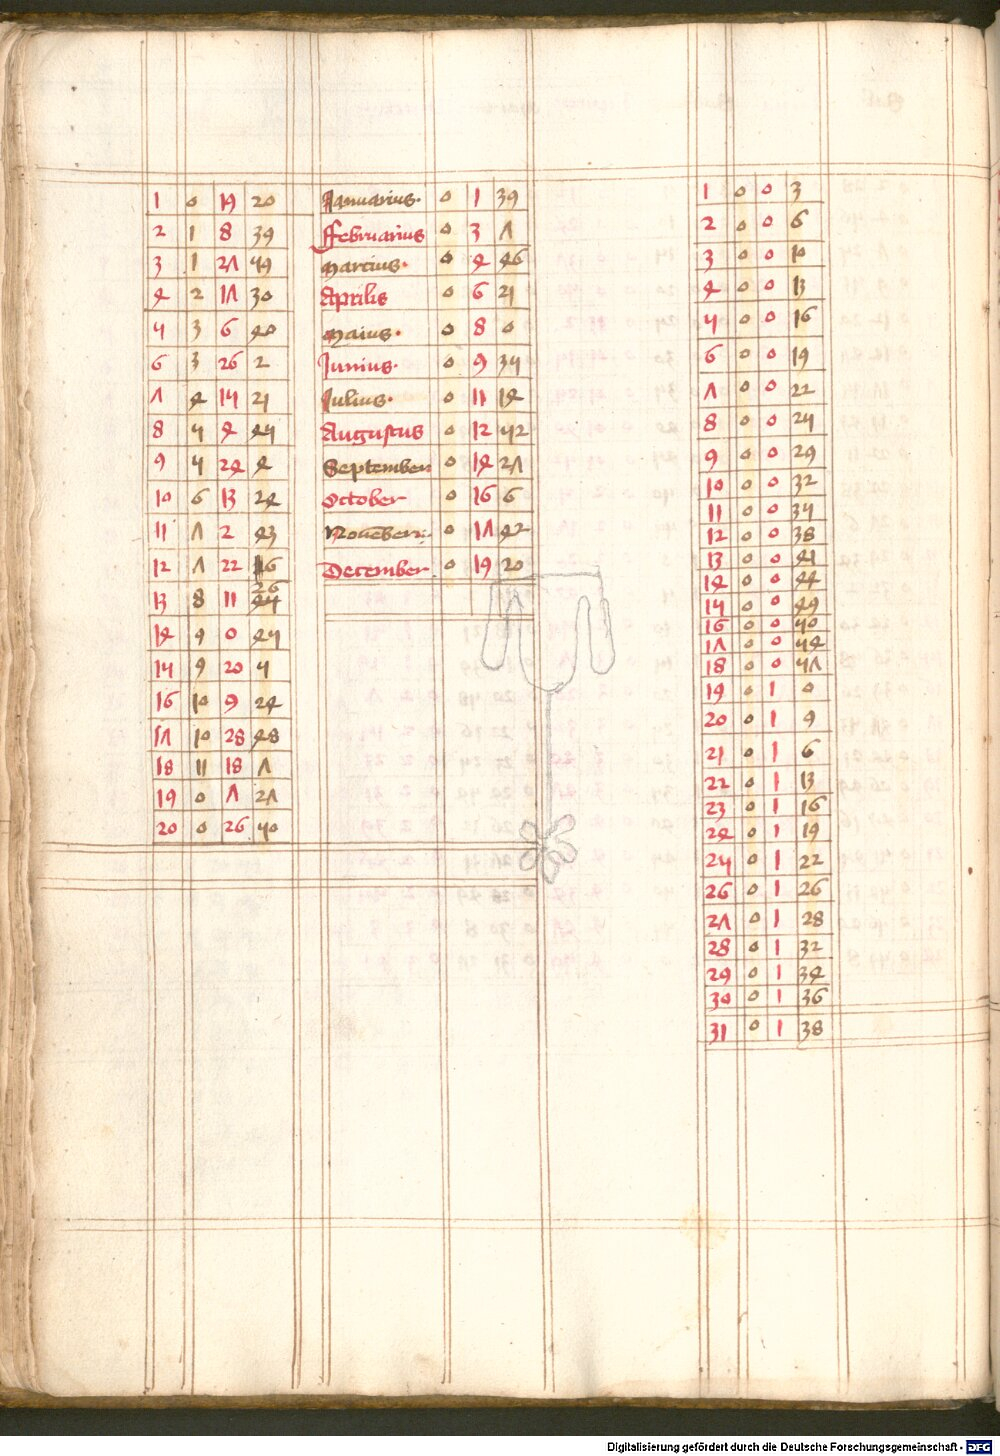 1 0 19 20
2 1 8 39
3 1 27 59
4 2 17 30
5 3 6 40
6 3 26 2
7 4 15 21
8 5 4 45
9 5 24 4
10 6 13 24
11 7 2 43
12 7 22 16
26
13 8 11 45
14 9 0 45
15 9 20 5
16 10 9 24
17 10 28 48
18 11 18 7
19 0 7 27
20 0 26 50
Januarius. 0 1 39
Februarius 0 3 7
Marcius. 0 4 46
Aprilis 0 6 21
Maius. 0 8 0
Junius. 0 9 35
Julius. 0 11 14
Augustus 0 12 52
September 0 14 27
October 0 16 6
Nouember. 0 17 42
December 0 19 20
1 0 0 3
2 0 0 6
3 0 0 10
4 0 0 13
5 0 0 16
6 0 0 19
7 0 0 22
8 0 0 25
9 0 0 29
10 0 0 32
11 0 0 35
12 0 0 38
13 0 0 41
14 0 0 44
15 0 0 49
16 0 0 50
17 0 0 54
18 0 0 57
19 0 1 0
20 0 1 9
21 0 1 6
22 0 1 13
23 0 1 16
24 0 1 19
25 0 1 22
26 0 1 26
27 0 1 28
28 0 1 32
29 0 1 34
30 0 1 36
31 0 1 38
Digitalisierung gefördert durch die Deutsche Forschungsgemeinschaft - DFG